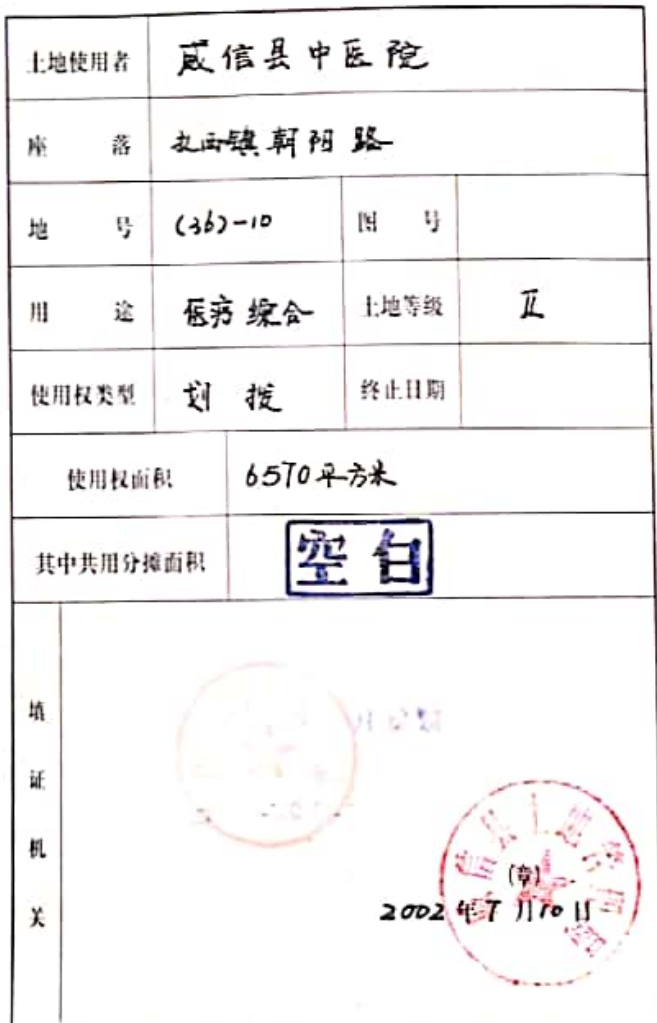 土地使用者 威信县中医院
座 落 扎西镇朝阳路
地 号 (36)-10 图 号
用 途 医疗综合 土地等级 Ⅱ
使用权类型 划拨 终止日期
使用权面积 6570平方米
其中共用分摊面积 空白
填证机关
威信县土地管理局
(章)
2002年7月10日